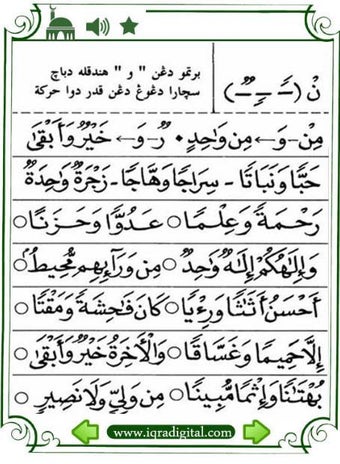 نْ (ــًــ ــٍــ ــٌــ) برتمو دڠن " و " هندقله دباچ
سچارا دڠوڠ دڠن قدر دوا حركة
مِنْ - وَ ← مِن وَاحِدٍ • رٌ وَ ← خَيْرٌ وَأَبْقَىٰ
حَبًّا وَنَبَاتًا - سِرَاجًا وَهَّاجًا - زَجْرَةٌ وَاحِدَةٌ
رَحْمَةً وَعِلْمًا ○ عَدُوًّا وَحَزَنًا ○
وَإِلَٰهُكُمْ إِلَٰهٌ وَاحِدٌ ○ مِن وَرَآءِهِم مُّحِيطٌ ○
أَحْسَنُ أَثَاثًا وَرِءْيًا ○ كَانَ فَاحِشَةً وَمَقْتًا ○
إِلَّا حَمِيمًا وَغَسَّاقًا ○ وَالْأَخِرَةُ خَيْرٌ وَأَبْقَىٰ ○
بُهْتَانًا وَإِثْمًا مُّبِينًا ○ مِن وَلِيٍّ وَلَا نَصِيرٍ ○
www.iqradigital.com